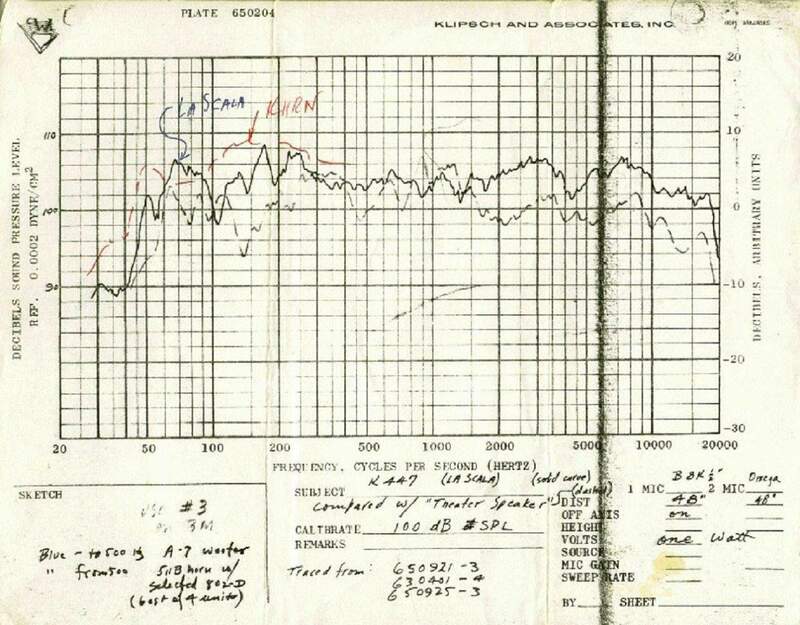 PLATE 650204
KLIPSCH AND ASSOCIATES, INC.
LA SCALA
KHRN
DECIBELS SOUND PRESSURE LEVEL
REF. 0.0002 DYNE/CM²
110
100
90
20
10
0
-10
-20
-30
DECIBELS, ARBITRARY UNITS
20 50 100 200 500 1000 2000 5000 10000 20000
FREQUENCY, CYCLES PER SECOND (HERTZ)
SKETCH
#3
on 3M
Blue - to 500 Hz A-7 woofer
" from 500 511B horn w/
selected 802-D
(best of 4 units)
SUBJECT K 447 (LA SCALA) (solid curve)
compared w/ "Theater Speaker" (dashed)
CALIBRATE 100 dB SPL
REMARKS
Traced from: 650921-3
630401-4
650925-3
1 MIC B&K ½" 2 MIC Omega
DIST 48" 48"
OFF AXIS on
HEIGHT
VOLTS one Watt
SOURCE
MIC GAIN
SWEEP RATE
BY SHEET